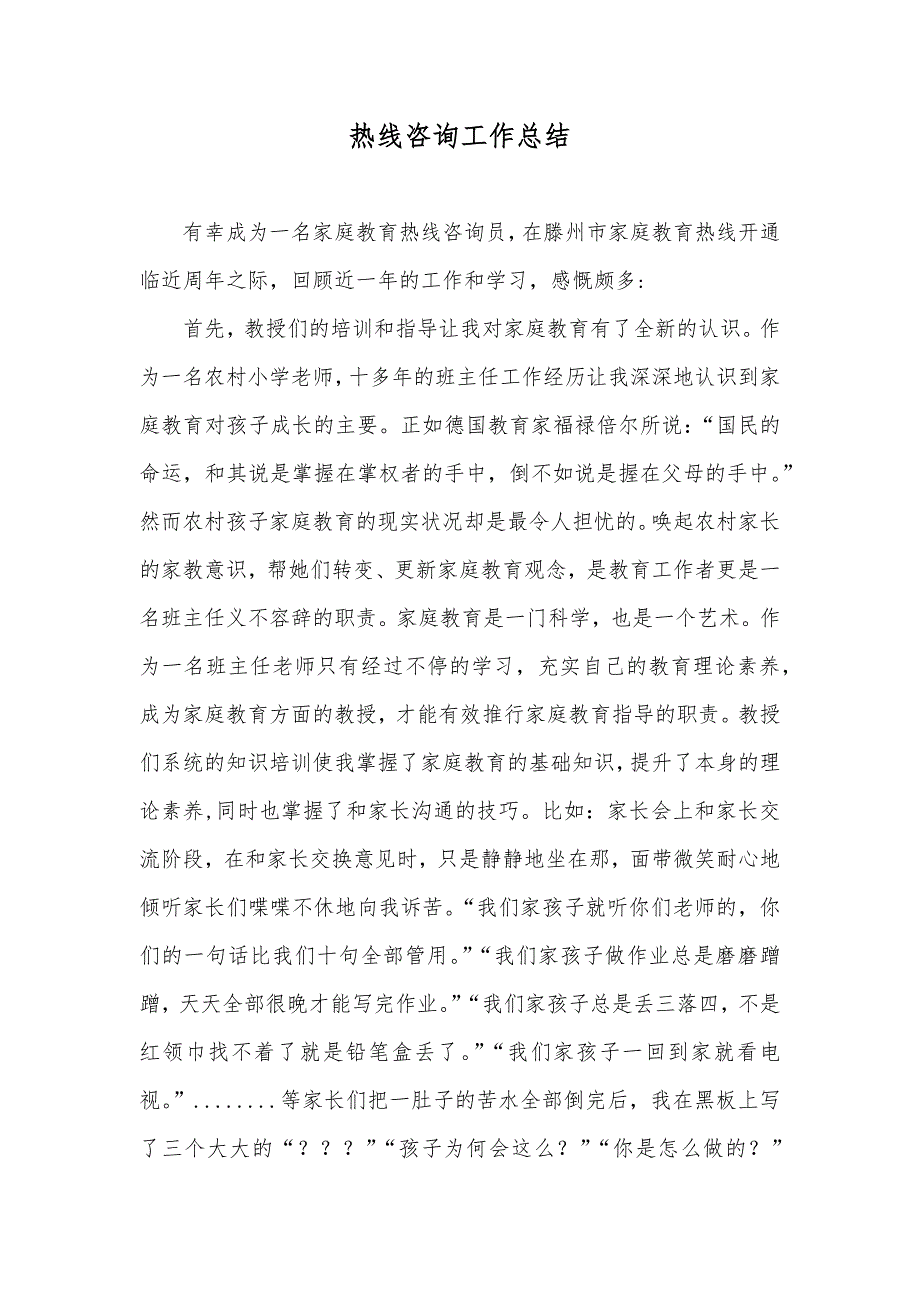 热线咨询工作总结
有幸成为一名家庭教育热线咨询员，在滕州市家庭教育热线开通
临近周年之际，回顾近一年的工作和学习，感慨颇多:
首先，教授们的培训和指导让我对家庭教育有了全新的认识。作
为一名农村小学老师，十多年的班主任工作经历让我深深地认识到家
庭教育对孩子成长的主要。正如德国教育家福禄倍尔所说：“国民的
命运，和其说是掌握在掌权者的手中，倒不如说是握在父母的手中。”
然而农村孩子家庭教育的现实状况却是最令人担忧的。唤起农村家长
的家教意识，帮她们转变、更新家庭教育观念，是教育工作者更是一
名班主任义不容辞的职责。家庭教育是一门科学，也是一个艺术。作
为一名班主任老师只有经过不停的学习，充实自己的教育理论素养，
成为家庭教育方面的教授，才能有效推行家庭教育指导的职责。教授
们系统的知识培训使我掌握了家庭教育的基础知识，提升了本身的理
论素养,同时也掌握了和家长沟通的技巧。比如：家长会上和家长交
流阶段，在和家长交换意见时，只是静静地坐在那，面带微笑耐心地
倾听家长们喋喋不休地向我诉苦。“我们家孩子就听你们老师的，你
们的一句话比我们十句全部管用。”“我们家孩子做作业总是磨磨蹭
蹭，天天全部很晚才能写完作业。”“我们家孩子总是丢三落四，不是
红领巾找不着了就是铅笔盒丢了。”“我们家孩子一回到家就看电
视。”........等家长们把一肚子的苦水全部倒完后，我在黑板上写
了三个大大的“？？？”“孩子为何会这么？”“你是怎么做的？”